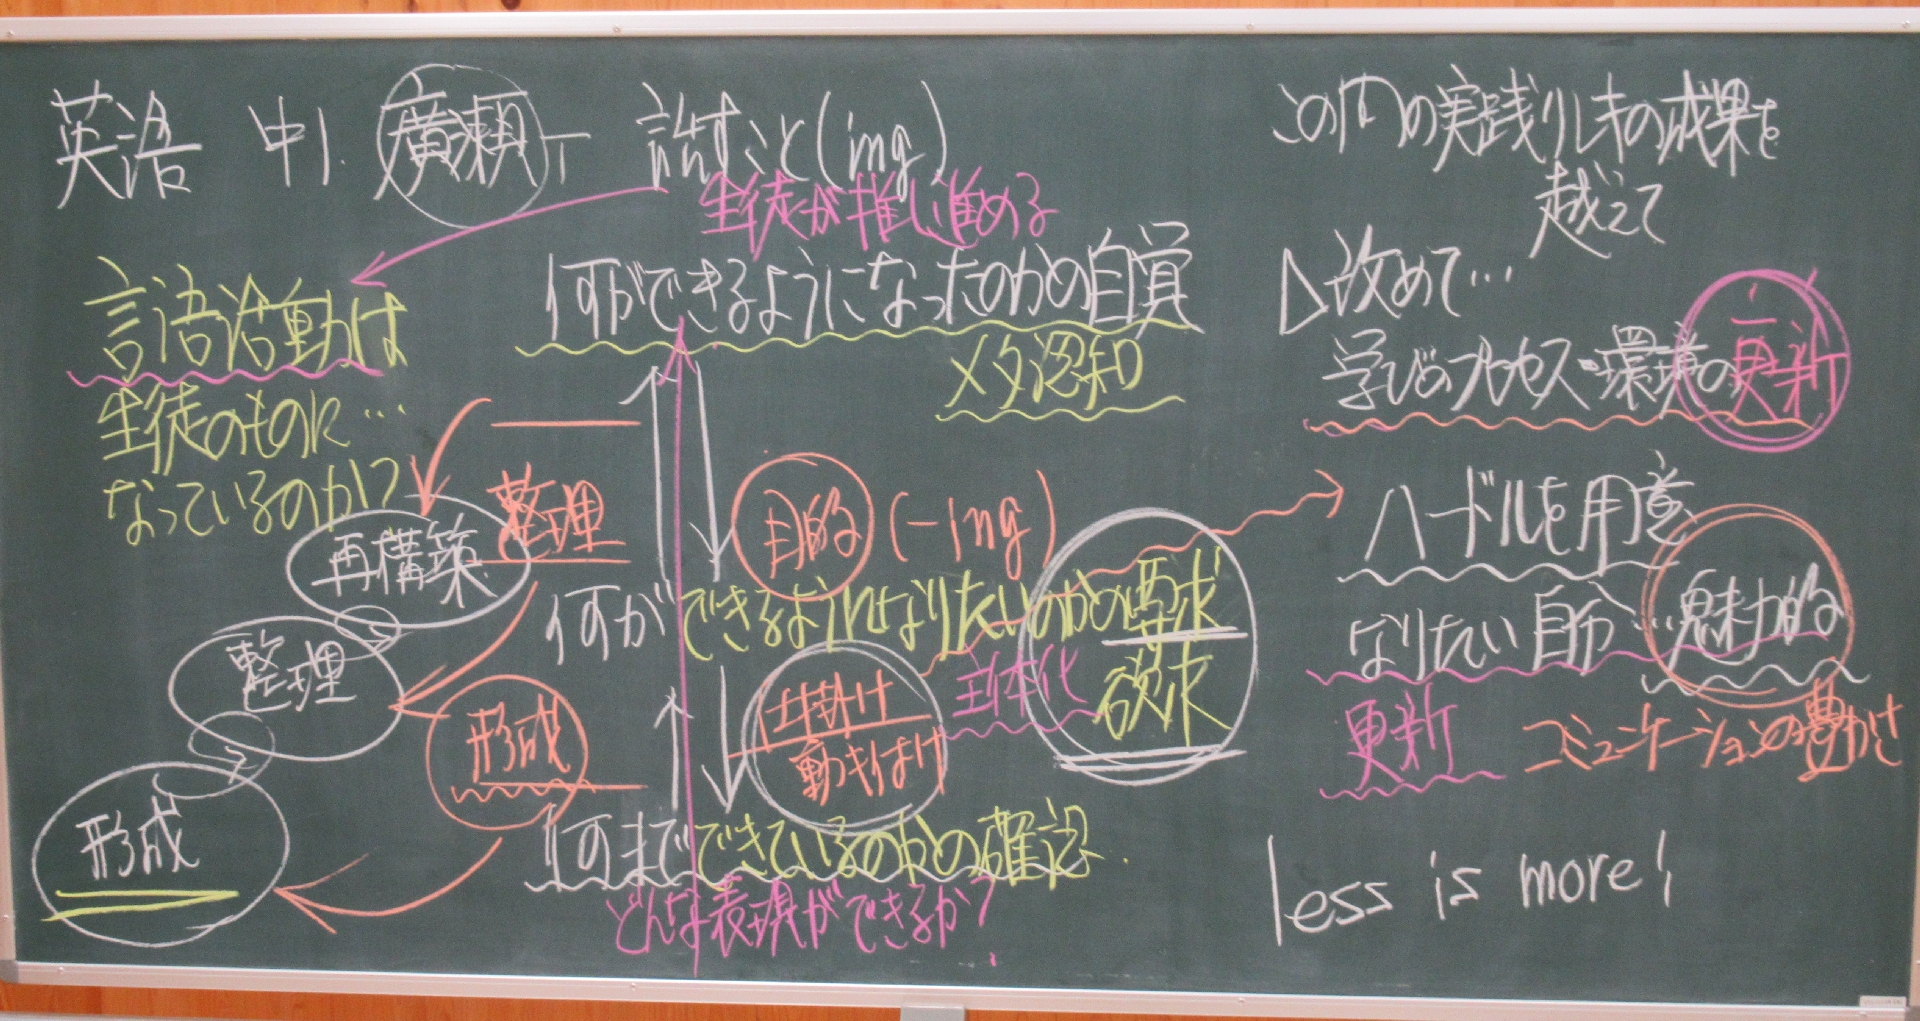 英語 中1. 廣瀬T 話すこと(ing)
生徒が推し進める
言語活動は
生徒のものに…
なっているのか?
何ができるようになったのかの自覚
メタ認知
整理
再構築
整理
形成
形成
目的(-ing)
何ができるようになりたいのかの要求
欲求
主体化
仕掛け
動機付け
何までできているのかの確認.
どんな表現ができるか?
この間の実践リレーの成果を
越えて
改めて…
学びのプロセス・環境の更新
ハードルを用意
なりたい自分…魅力的
更新 コミュニケーションの豊かさ
less is more!